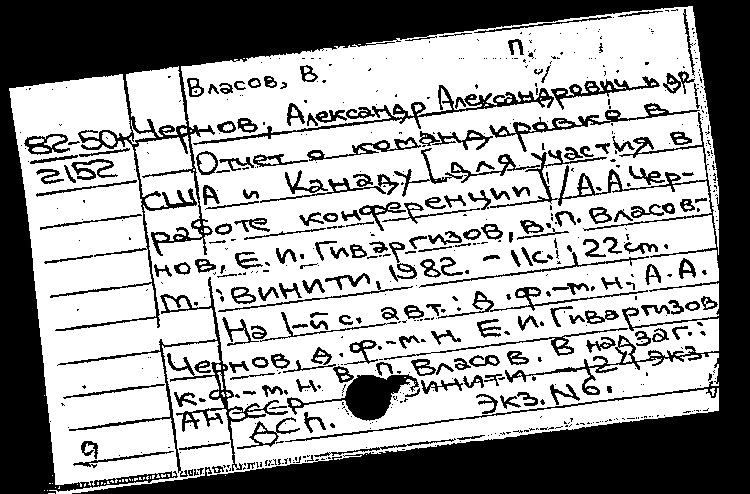 п.
Власов, В.
82-50к
2152
Чернов, Александр Александрович и др
Отчет о командировке в
США и Канаду [для участия в
работе конференции] / А.А. Чер-
нов, Е.И. Гиваргизов, В.П. Власов.-
М.: ВИНИТИ, 1982. - 11с.; 22см.
На 1-й с. авт.: д.ф.-м.н. А.А.
Чернов, д.ф.-м.н. Е.И. Гиваргизов,
к.ф.-м.н. В.П. Власов. В надзаг.:
АНСССР, ВИНИТИ. - 124 экз.
ДСП. Экз. N6.
9